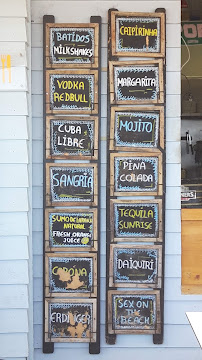 BATIDOS
MILKSHAKES
VODKA
REDBULL
CUBA
LIBRE
SANGRIA
SUMO DE LARANJA
NATURAL
FRESH ORANGE
JUICE
CORONA
ERDINGER
CAIPIRINHA
MARGARITA
MOJITO
PINA
COLADA
TEQUILA
SUNRISE
DAIQUIRI
SEX ON
THE BEACH